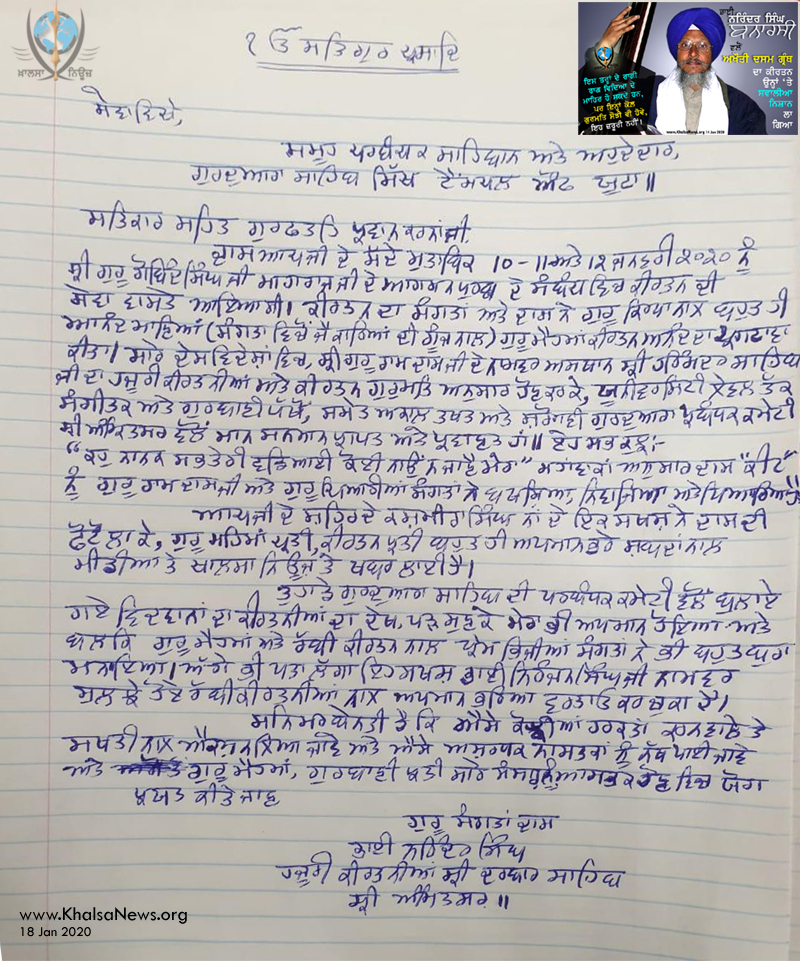 ਖ਼ਾਲਸਾ ਨਿਊਜ਼
ਭਾਈ
ਨਰਿੰਦਰ ਸਿੰਘ
ਬਨਾਰਸੀ
ਵਲੋਂ
ਅਖੌਤੀ ਦਸਮ ਗ੍ਰੰਥ
ਦਾ ਕੀਰਤਨ
ਉਨ੍ਹਾਂ 'ਤੇ
ਸਵਾਲੀਆ
ਨਿਸ਼ਾਨ
ਲਾ
ਗਿਆ
ਇਸ ਤਰ੍ਹਾਂ ਦੇ ਰਾਗੀ
ਰਾਗ ਵਿਦਿਆ ਦੇ
ਮਾਹਿਰ ਹੋ ਸਕਦੇ ਹਨ,
ਪਰ ਇਨ੍ਹਾਂ ਕੋਲ
ਗੁਰਮਤਿ ਸੋਝੀ ਵੀ ਹੋਵੇ,
ਇਹ ਜ਼ਰੂਰੀ ਨਹੀਂ !
www.KhalsaNews.org 14 Jan 2020
੧ਓ ਸਤਿਗੁਰ ਪ੍ਰਸਾਦਿ
ਸੇਵਾ ਵਿਖੇ,
ਸਮੂਹ ਪਰਬੰਧਕ ਸਾਹਿਬਾਨ ਅਤੇ ਅਹੁਦੇਦਾਰ,
ਗੁਰਦੁਆਰਾ ਸਾਹਿਬ ਸਿੱਖ ਟੈਂਮਪਲ ਔਫ ਯੂਟਾ॥
ਸਤਿਕਾਰ ਸਹਿਤ ਗੁਰਫਤਹਿ ਪ੍ਰਵਾਨ ਕਰਨਾਂਜੀ,
ਦਾਸ ਆਪਜੀ ਦੇ ਸੱਦੇ ਮੁਤਾਬਿਕ 10-11ਅਤੇ 12 ਜਨਵਰੀ ੨੦੨੦ ਨੂੰ
ਸ੍ਰੀ ਗੁਰੂ ਗੋਬਿੰਦ ਸਿੰਘ ਜੀ ਮਾਹਾਰਾਜ ਜੀ ਦੇ ਆਗਮਨ ਪੁਰਬ ਦੇ ਸੰਬੰਧ ਵਿਚ ਕੀਰਤਨ ਦੀ
ਸੇਵਾ ਵਾਸਤੇ ਆਇਆਸੀ। ਕੀਰਤਨ ਦਾ ਸੰਗਤਾਂ ਅਤੇ ਦਾਸ ਨੇ ਗੁਰੂ ਕਿਰਪਾ ਨਾਲ ਬਹੁਤ ਹੀ
ਆਨੰਦ ਮਾਣਿਆਂ (ਸੰਗਤਾ ਵਿਚੋਂ ਜੈਕਾਰਿਆਂ ਦੀ ਗੂੰਜ ਨਾਲ) ਗੁਰੂ ਮੈਹਮਾਂ ਕੀਰਤਨ ਆਨੰਦ ਦਾ ਪ੍ਰਗਟਾਵਾ
ਕੀਤਾ। ਸਾਰੇ ਦੇਸ ਵਿਦੇਸ਼ਾਂ ਵਿਚ, ਸ੍ਰੀ ਗੁਰੂ ਰਾਮ ਦਾਸ ਜੀ ਦੇ ਨਾਮਵਰ ਅਸਥਾਨ ਸ੍ਰੀ ਹਰਿਮੰਦਰ ਸਾਹਿਬ
ਜੀ ਦਾ ਹਜੂਰੀ ਕੀਰਤਨੀਆਂ ਅਤੇ ਕੀਰਤਨ ਗੁਰਮਤਿ ਅਨੁਸਾਰ ਹੋਣ ਕਰਕੇ, ਯੂਨੀਵਰਸਿਟੀ ਲੇਵਲ ਤੱਕ
ਸੰਗੀਤਕ ਅਤੇ ਗੁਰਬਾਣੀ ਪੱਖੋਂ, ਸਮੇਤ ਅਕਾਲ ਤਖਤ ਅਤੇ ਸ਼ਰੋਮਣੀ ਗੁਰਦੁਆਰਾ ਪ੍ਰਬੰਧਕ ਕਮੇਟੀ
ਸ੍ਰੀ ਅੰਮ੍ਰਿਤਸਰ ਵੱਲੋਂ ਮਾਨ ਸਨਮਾਨ ਪ੍ਰਾਪਤ ਅਤੇ ਪ੍ਰਵਾਣਤ ਹਾਂ॥ ਏਹ ਸਭ ਕਛੁ:-
"ਕਹੁ ਨਾਨਕ ਸਭ ਤੇਰੀ ਵਡਿਆਈ ਕੋਈ ਨਾਉਂ ਨ ਜਾਣੈ ਮੇਰਾ" ਮਹਾਂਵਾਕਾਂ ਅਨੁਸਾਰ ਦਾਸ "ਕੀਟ"
ਨੂੰ ਗੁਰੂ ਰਾਮ ਦਾਸ ਜੀ ਅਤੇ ਗੁਰੂ ਪਿਆਰੀਆਂ ਸੰਗਤਾਂ ਨੇ ਬਖਸ਼ਿਆ, ਨਿਵਾਜਿਆ ਅਤੇ ਪਿਆਰਿਆ ਹੈ
ਆਪਜੀ ਦੇ ਸ਼ਹਿਰ ਦੇ ਕਸ਼ਮੀਰਾ ਸਿੰਘ ਨਾਂ ਦੇ ਇਕ ਸਖਸ਼ ਨੇ ਦਾਸ ਦੀ
ਫੋਟੋ ਲਾ ਕੇ, ਗੁਰੂ ਮਹਿਮਾਂ ਪ੍ਰਤੀ, ਕੀਰਤਨ ਪ੍ਰਤੀ ਬਹੁਤ ਹੀ ਅਪਮਾਨ ਭਰੇ ਸ਼ਬਦਾਂ ਨਾਲ
ਮੀਡੀਆ ਤੇ ਖਾਲਸਾ ਨਿਊਜ ਤੇ ਖਬਰ ਲਾਈ ਹੈ।
ਤੁਹਾਡੇ ਗੁਰਦੁਆਰਾ ਸਾਹਿਬ ਦੀ ਪਰਬੰਧਕ ਕਮੇਟੀ ਵੱਲੋਂ ਬੁਲਾਏ
ਗਏ ਵਿਦਵਾਨਾਂ ਦਾ ਕੀਰਤਨੀਆਂ ਦਾ ਦੇਖ, ਪੜ ਸੁਣ ਕੇ ਮੇਰਾ ਭੀ ਅਪਮਾਨ ਹੋਇਆ ਅਤੇ
ਬਲਕਿ ਗੁਰੂ ਮੈਹਮਾਂ ਅਤੇ ਰੱਬੀ ਕੀਰਤਨ ਨਾਲ ਪ੍ਰੇਮ ਭਿਜੀਆਂ ਸੰਗਤਾਂ ਨੇ ਭੀ ਬਹੁਤ ਬੁਰਾ
ਮਨਾਇਆ। ਅੱਗੇ ਭੀ ਪਤਾ ਲੱਗਾ ਇਹ ਸਖਸ ਭਾਈ ਨਿਰੰਜਨ ਸਿੰਘ ਜੀ ਨਾਮਵਰ
ਰੱਬੀ ਕੀਰਤਨੀਆਂ ਨਾਲ ਅਪਮਾਨ ਭਰਿਆ ਵਰਤਾਓ ਕਰ ਚੁਕਾ ਹੈ।
ਸਨਿਮਰ ਬੇਨਤੀ ਹੈ ਕਿ ਐਸੇ ਕੋਝੀਆਂ ਹਰਕਤਾਂ ਕਰਨ ਵਾਲੇ ਤੇ
ਸਖਤੀ ਨਾਲ ਐਕਸ਼ਨ ਲਿਆ ਜਾਵੇ ਅਤੇ ਐਸੇ ਅਸ਼ਰਧਕ ਨਾਸਤਕਾਂ ਨੂੰ ਨੱਥ ਪਾਈ ਜਾਵੇ
ਅਤੇ ਗੁਰੂ ਮੈਹਮਾਂ, ਗੁਰਬਾਣੀ ਪ੍ਰਤੀ ਸਾਰੇ ਸੰਸਾਰ ਵਿਚ ਯੋਗ
ਪ੍ਰਬੰਧ ਕੀਤੇ ਜਾਣ
ਗੁਰੂ ਸੰਗਤਾਂ ਦਾਸ
ਭਾਈ ਨਰਿੰਦਰ ਸਿੰਘ
ਹਜੂਰੀ ਕੀਰਤਨੀਆਂ ਸ੍ਰੀ ਦਰਬਾਰ ਸਾਹਿਬ
ਸ੍ਰੀ ਅੰਮ੍ਰਿਤਸਰ॥
www.KhalsaNews.org
18 Jan 2020